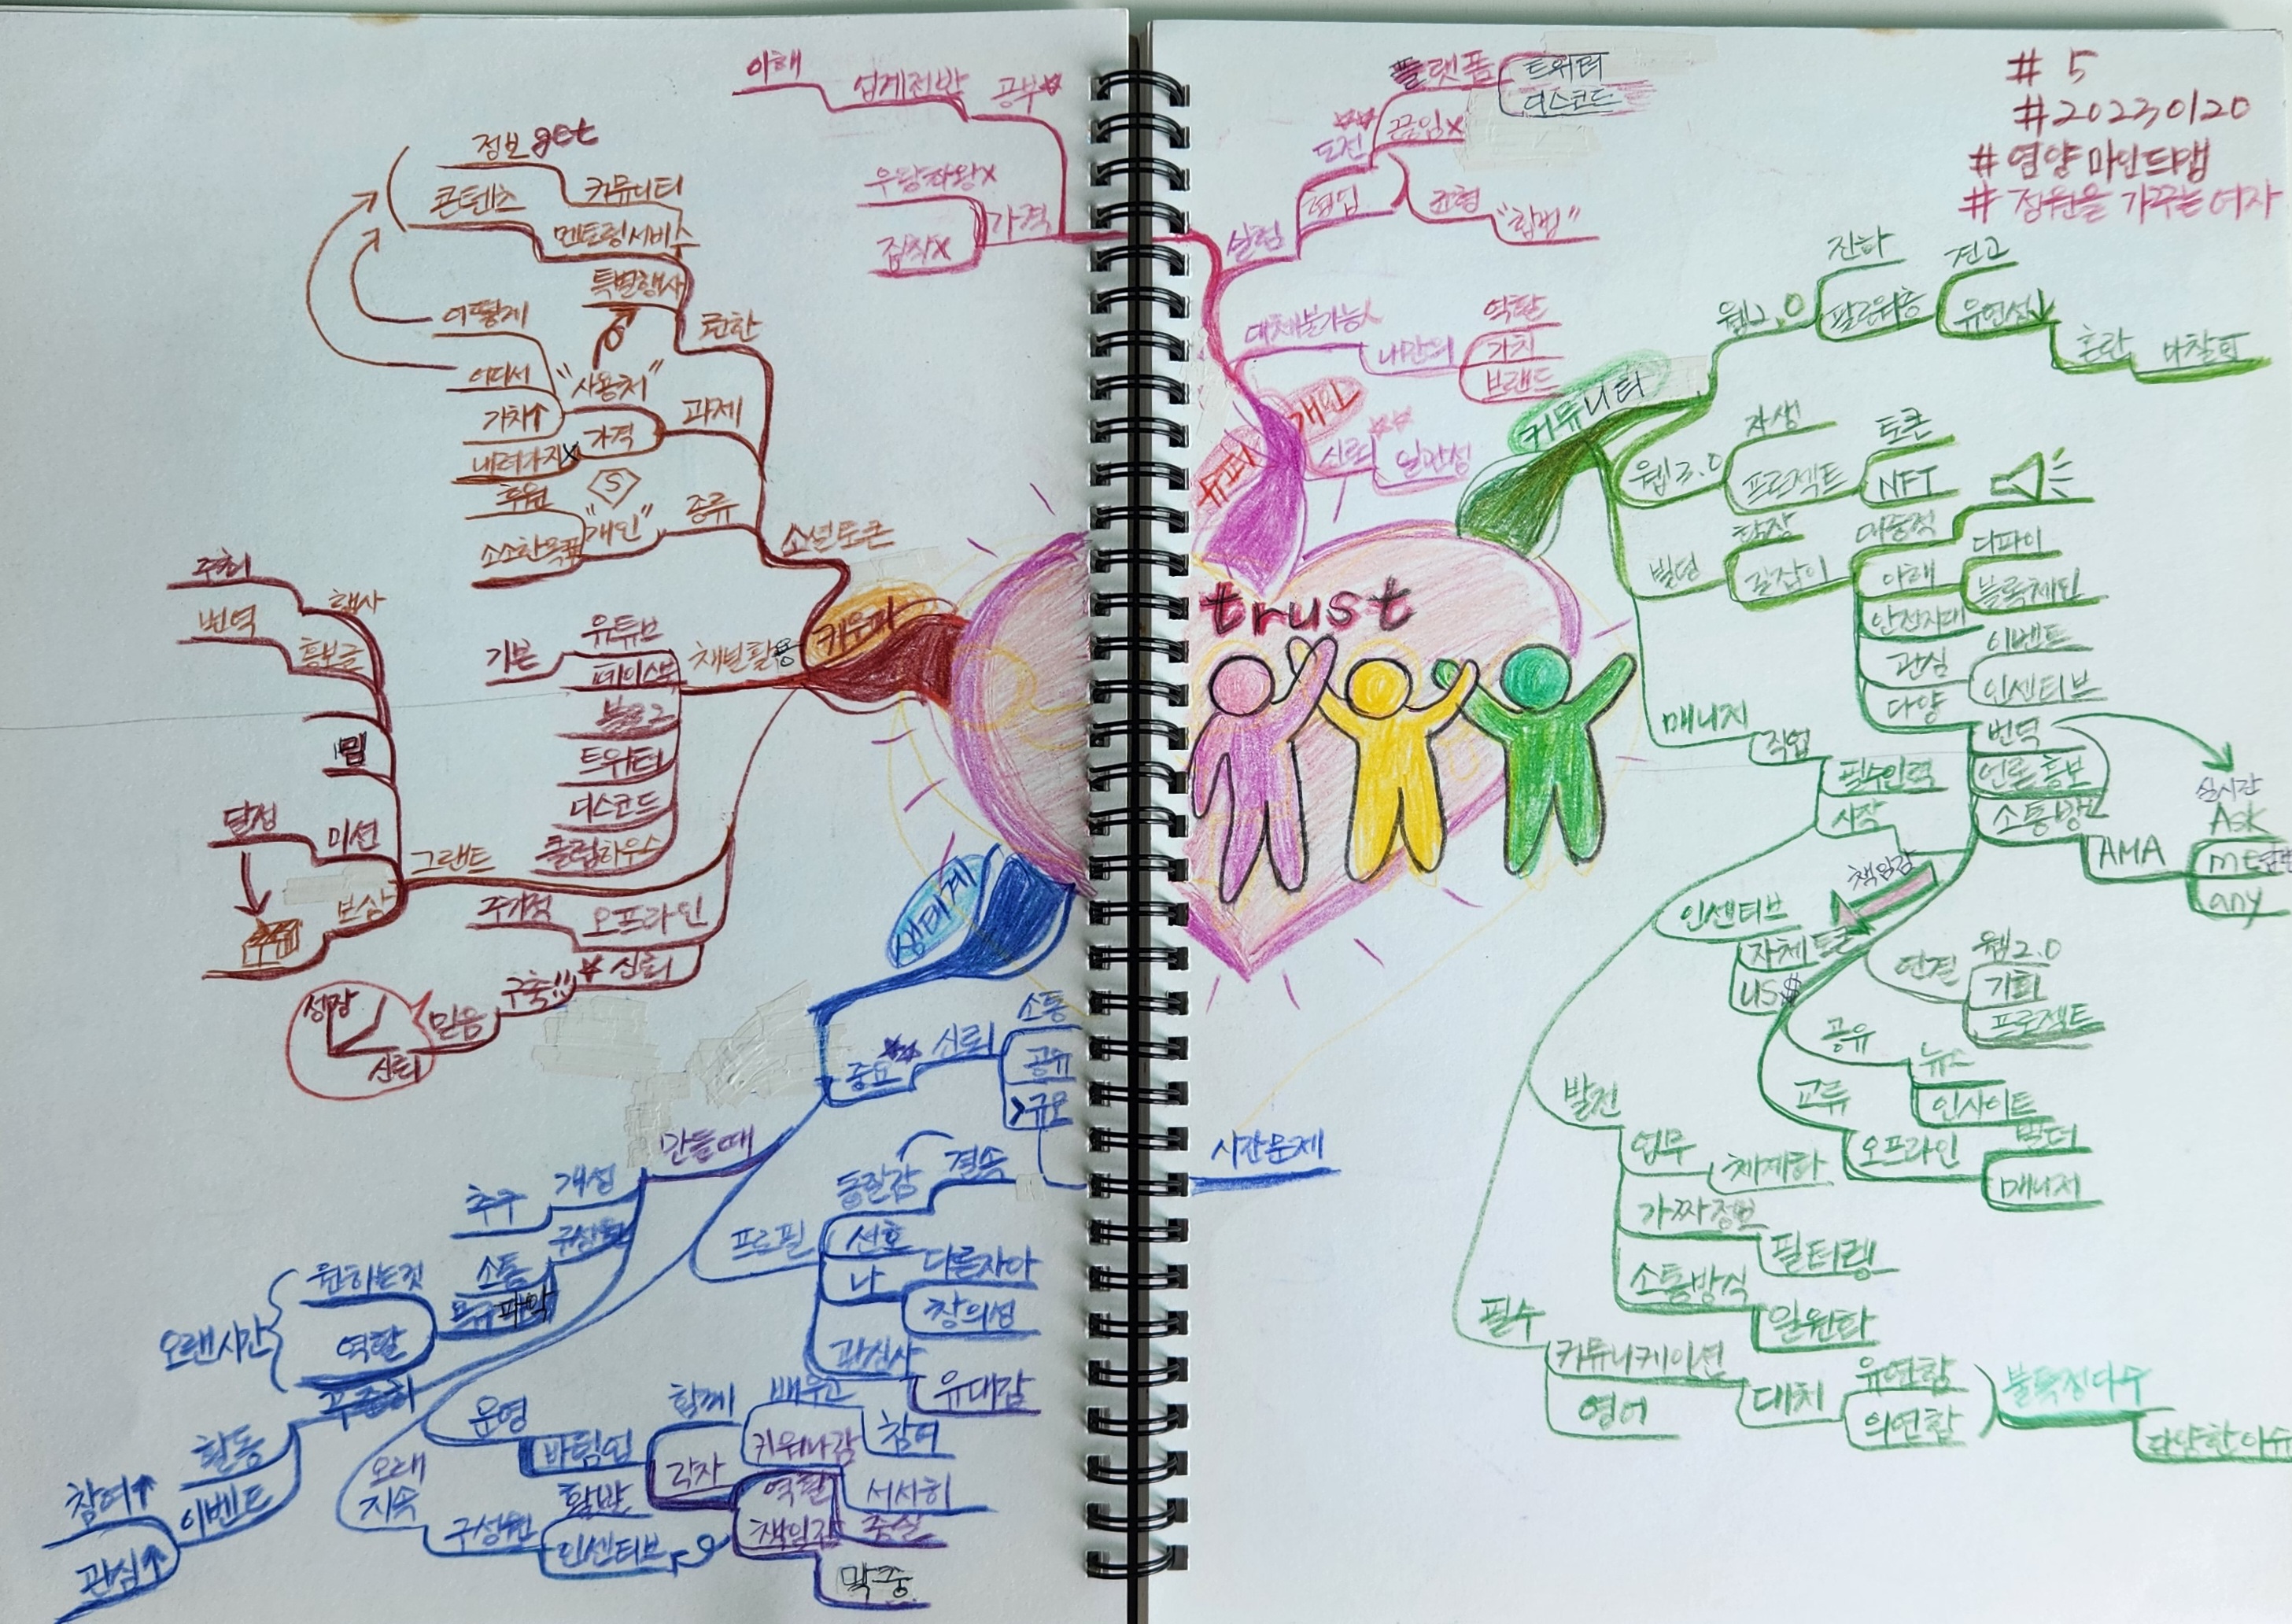 # 5
#20230120
# 영양 마인드맵
# 정원을 가꾸는 여자
trust
이해
섭계전반
공부
우당좌왕x
집착x
가격
실험
도전
플랫폼
트위터
디스코드
끊임x
몰입
균형
"합법"
대체불가능人
나만의
역할
가치
브랜드
신뢰
일관성
커뮤니티
웹2.0
진화
팔로워층
견고
유연성↓
혼란
마찰可
웹3.0
자생
프로젝트
토큰
NFT
빌딩
확장
길잡이
대중적
아래
디파이
블록체인
안전지대
관심
이벤트
인센티브
다양
번역
언론홍보
소통방
AMA
실시간
Ask
me
any
매니저
직업
필수인력
시작
책임감
인센티브
자체토큰
US$
연결
웹2.0
기회
프로젝트
공유
뉴스
인사이트
교류
오프라인
빌더
매니저
발전
업무
체계화
가짜정보
필터링
소통방식
일원화
필수
커뮤니케이션
영어
대처
유연함
의연함
불특정다수
다양한이슈
정보get
콘텐츠
커뮤니티
멘토링서비스
특별행사
어떻게
어디서
"사용처"
가치↑
내려가지x
가격
과제
후원
소소한목표
S
"개인"
종류
소셜토큰
채널활용
기본
유튜브
페이스북
블로그
트위터
디스코드
클럽하우스
주최
번역
행사
홍보글
밈
달성
미션
보상
그랜트
오프라인
신뢰
구축!!!
믿음
성장
신뢰
생태계
중요
신뢰
소통
공유
>규모
시간문제
만들때
개성
추구
구성원
소통
욕구파악
원하는것
역할
오랜시간
꾸준히
활동
이벤트
참여↑
관심↑
프로필
동질감
결속
선호
나
다른자아
창의성
관심사
유대감
운영
바텀업
함께
배우고
키워나감
참여
각자
역할
책임감
서서히
충실
막중
오래
지속
구성원
활발
인센티브